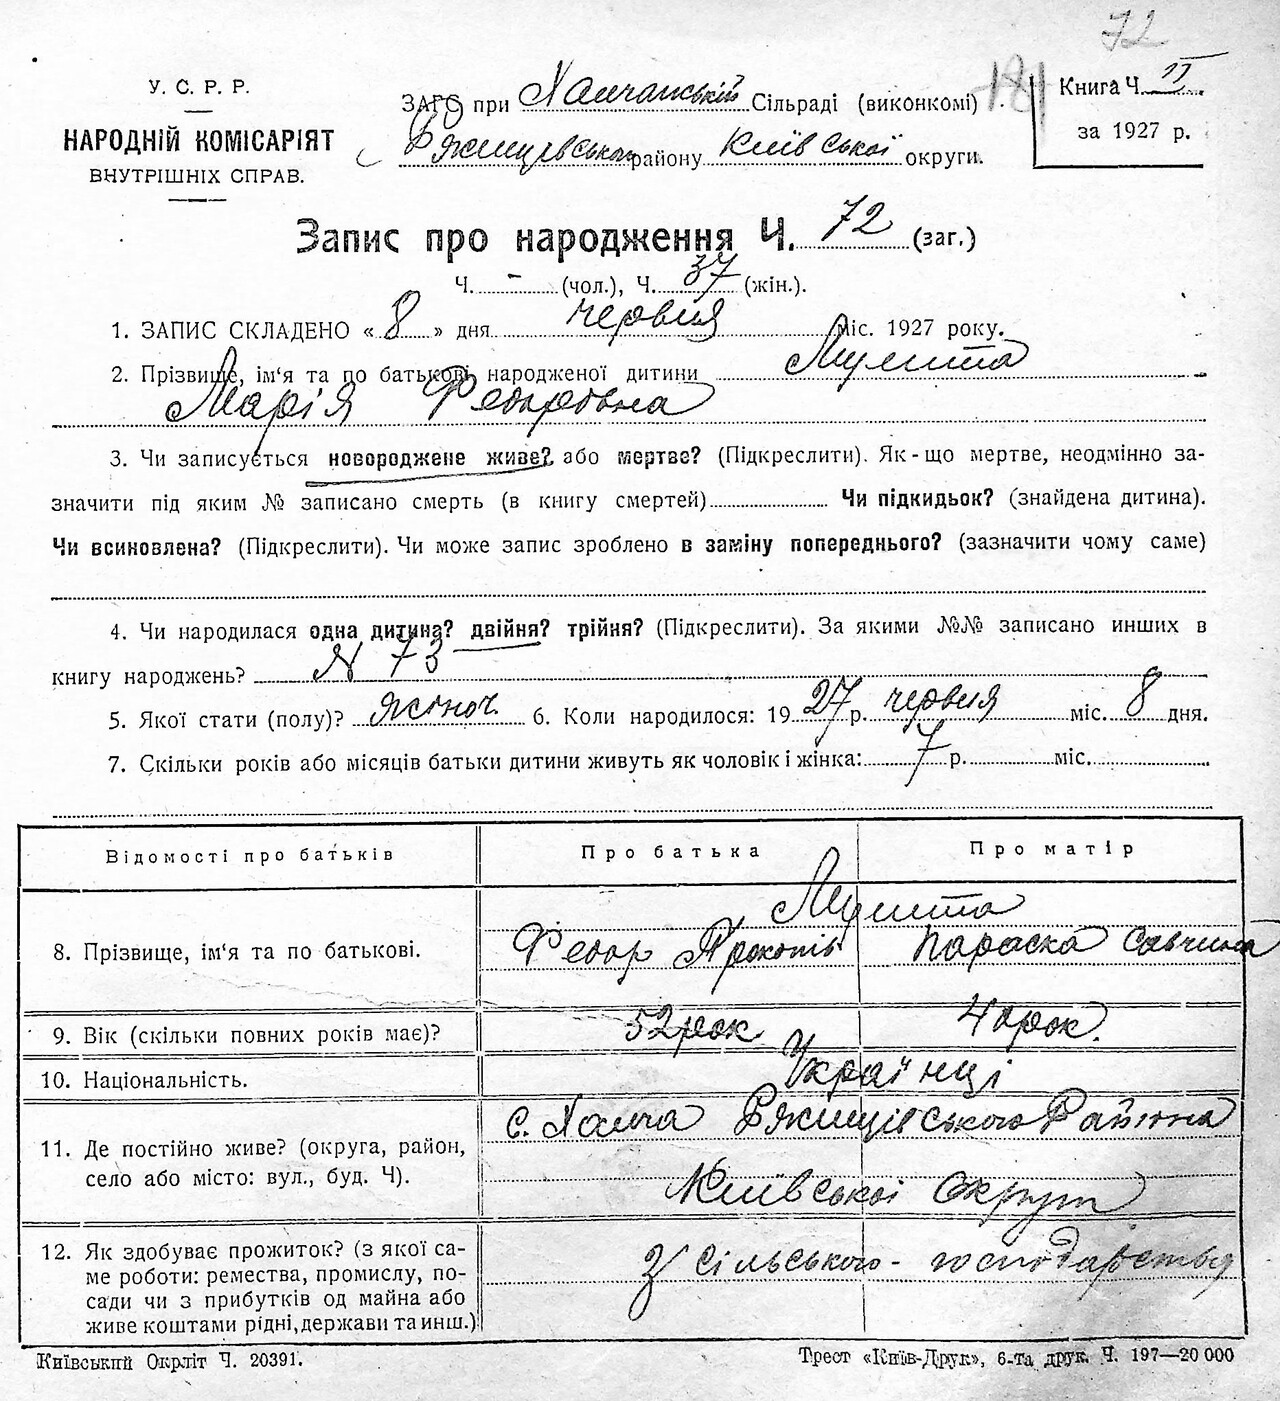 72
У. С. Р. Р.
НАРОДНІЙ КОМІСАРІЯТ
ВНУТРІШНІХ СПРАВ.
ЗАГС при Халчанській Сільраді (виконкомі)
Ржищівського району Київської округи.
181
Книга Ч. II
за 1927 р.
Запис про народження Ч. 72 (заг.)
Ч. - (чол.), Ч. 37 (жін.).
1. ЗАПИС СКЛАДЕНО « 8 » дня червня міс. 1927 року.
2. Прізвище, ім‘я та по батькові народженої дитини
Марія Федоровна
3. Чи записується новороджене живе? або мертве? (Підкреслити). Як-що мертве, неодмінно за-
значити під яким № записано смерть (в книгу смертей) Чи підкидьок? (знайдена дитина).
Чи всиновлена? (Підкреслити). Чи може запис зроблено в заміну попереднього? (зазначити чому саме)
4. Чи народилася одна дитина? двійня? трійня? (Підкреслити). За якими №№ записано инших в
книгу народжень? N 73
5. Якої стати (полу)? жіноч. 6. Коли народилося: 1927 р. червня міс. 8 дня.
7. Скільки років або місяців батьки дитини живуть як чоловік і жінка: 7 р. міс.
Відомості про батьків Про батька Про матір
8. Прізвище, ім‘я та по батькові.
Федор Прокопів Параска Савчина
9. Вік (скільки повних років має)? 52 рок 40 рок.
10. Національність. Українці
11. Де постійно живе? (округа, район,
село або місто: вул., буд. Ч).
с. Халча Ржищівського Района
Київської Округи
12. Як здобуває прожиток? (з якої са-
ме роботи: ремества, промислу, по-
сади чи з прибутків од майна або
живе коштами рідні, держави та инш.)
З сільського-господарства
Київський Окрліт Ч. 20391.
Трест «Київ-Друк», 6-та друк. Ч. 197—20 000